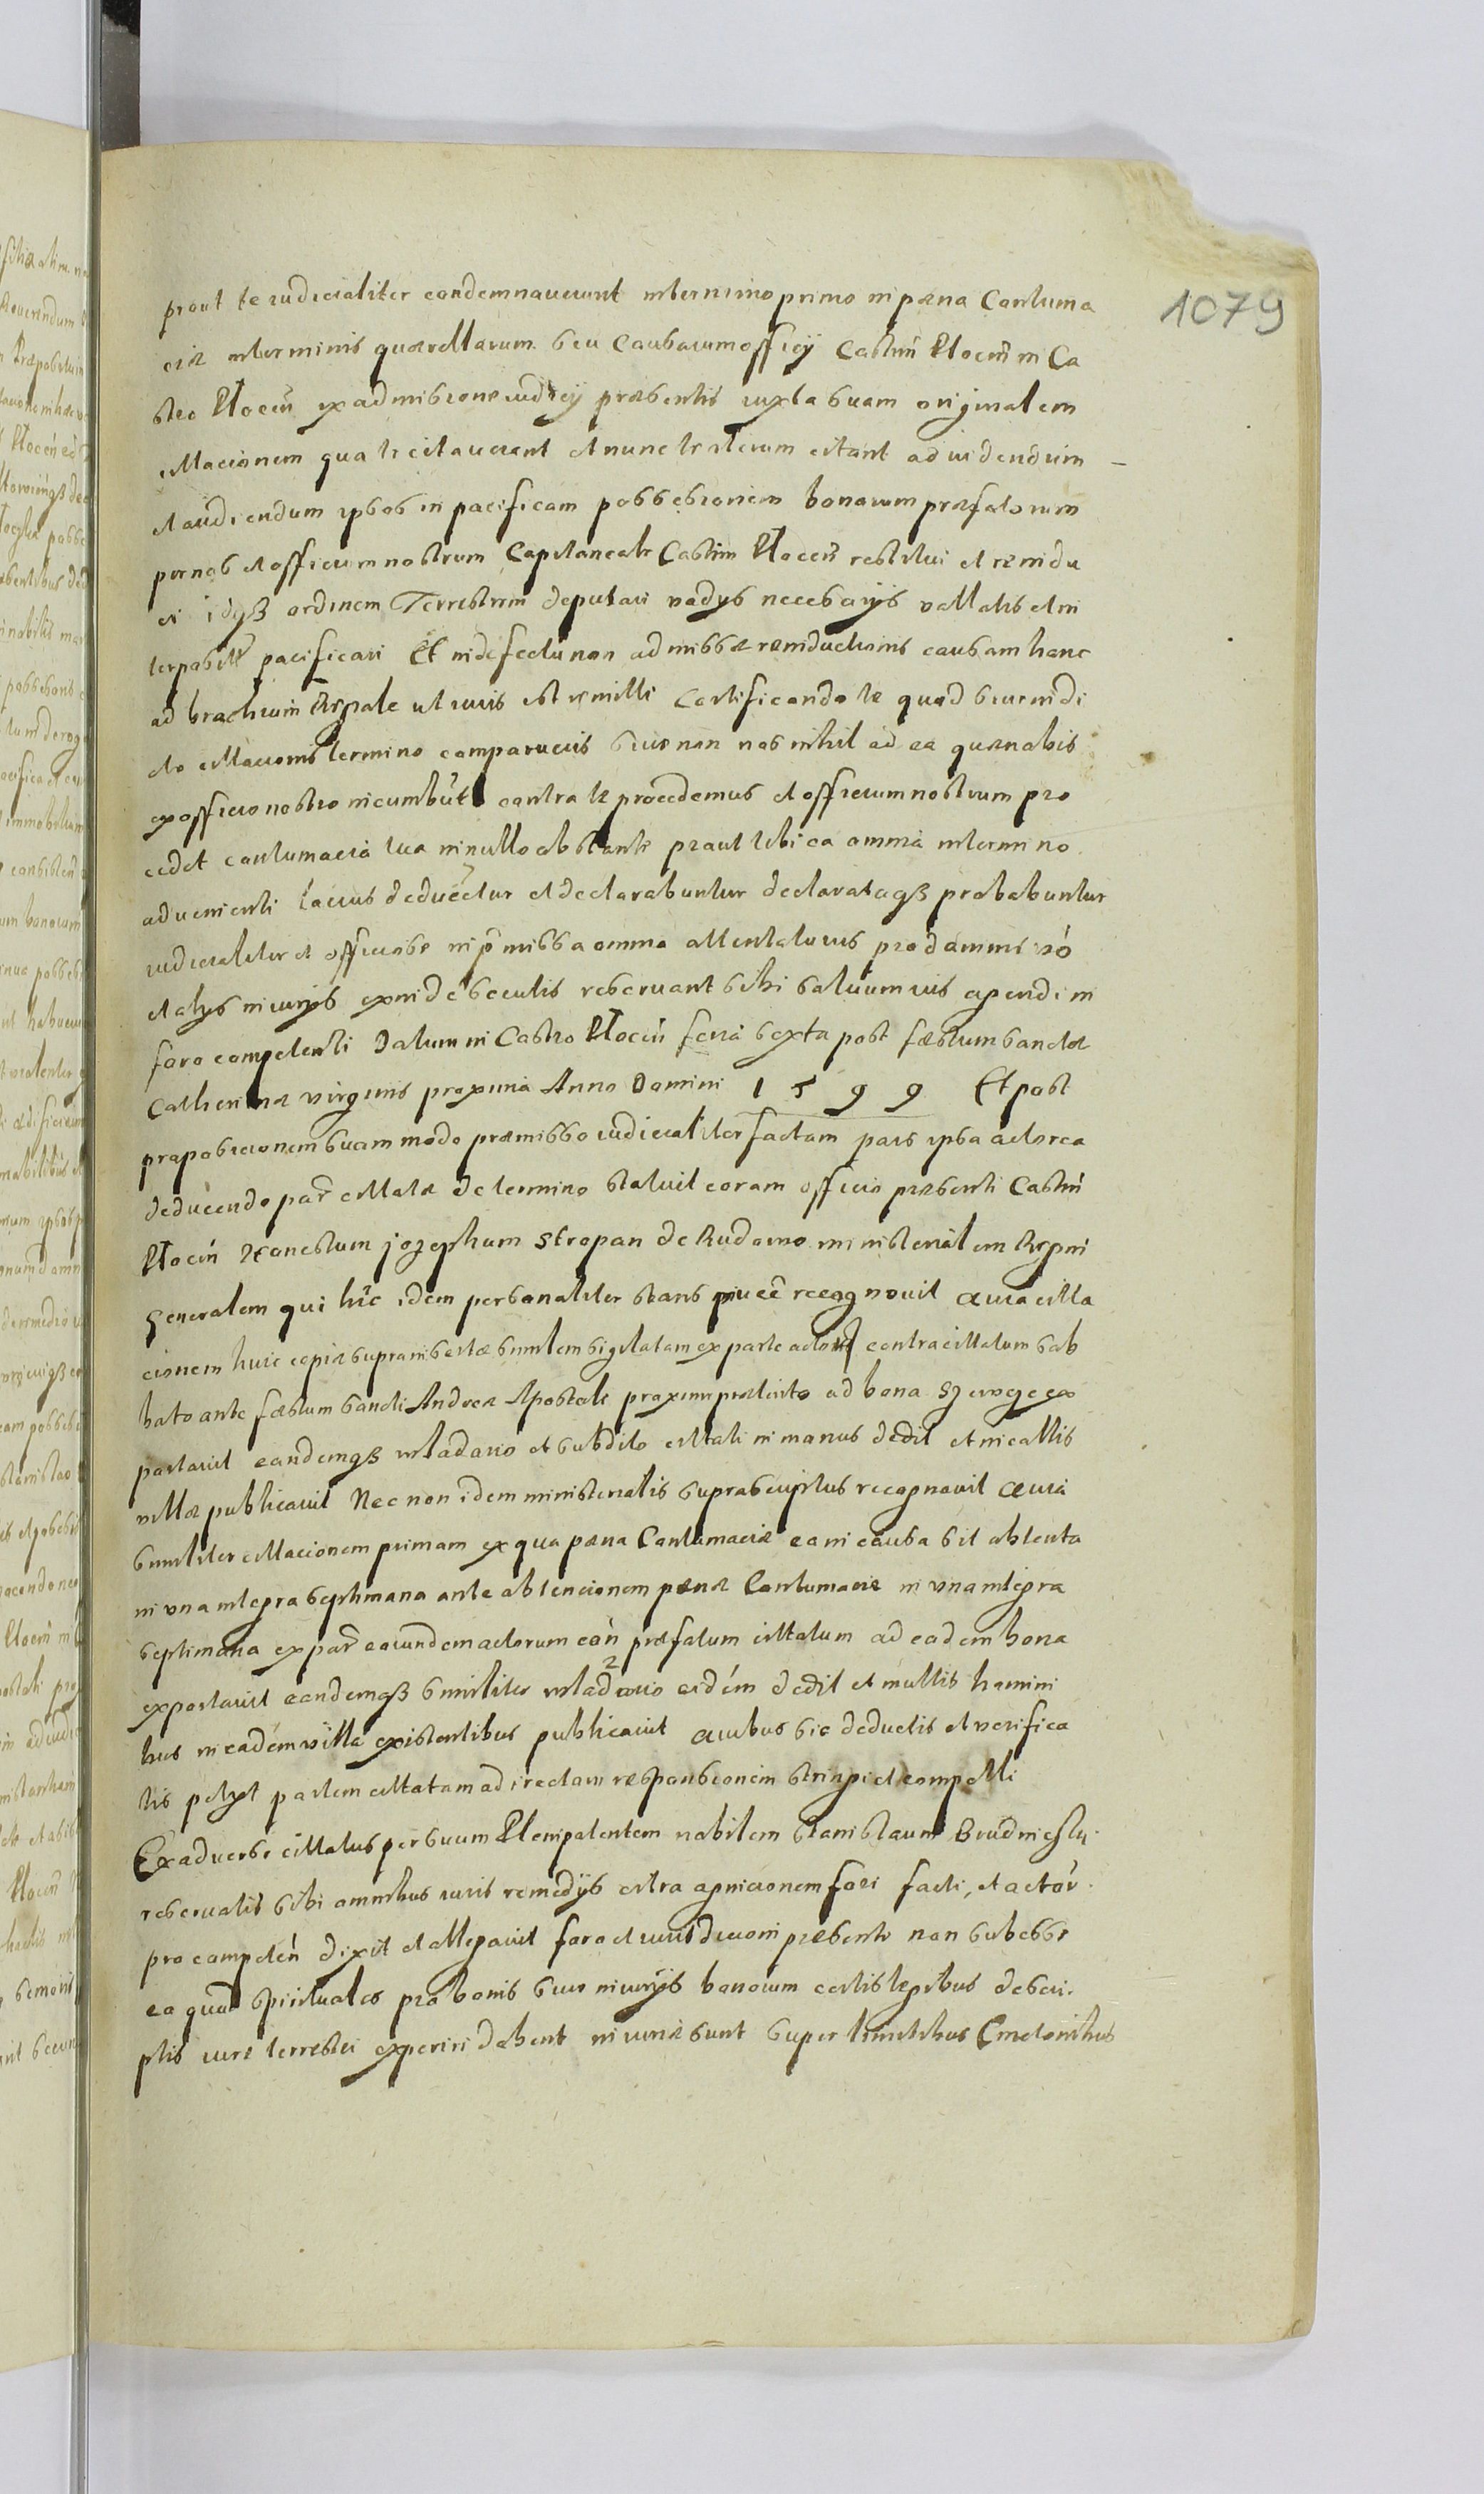 1079
prout te iudicialiter condemnaverunt in termino primo in pæna Contuma
ciæ in terminis quærellarum seu Causarum officÿ Castrn̄ Plocen̄ in Ca
stro Plocen̄ ex admissione iudicÿ præsentis iuxta suam originalem
cittacionem qua te citaverant et nunc te iterum citant ad videndum
et audiendum ipsos in pacificam possessionem bonorum præfatorum
per nos et officium nostrum Capitaneale Castrn̄ Plocen̄ restitui et reindu
ci idqß ordinem Terrestrem deputari vadÿs necessarÿs vallatis et in
pacificari Et in defectu non admissæ reinductionis causam hanc
ad brachium Regale ut iuris est remitti Certificando te quod sive in di
cto cittacionis termino comparueris sive non nos nihil ad ea quæ nobis
ex officio nostro incumbūt contra te procedemus et officium nostrum pro
cedet contumacia tua in nullo obstante prout tibi ea omnia in termino
advenienti lacius deducetur et declarabuntur declarataqß probabuntur
iudicialiter et officiose in p̄missa omnia attentaturus pro damnis v̄o
et alÿs iniurÿs exinde secutis reservant sibi salvum ius agendi in
foro competenti Datum in Castro Plocen̄ feria sexta post fæstum sanctæ
Catherinæ virginis proxima Anno Domini 1599 Et post
proposicionem suam modo præmisso iudicialiter factam pars ipsa actorea
deducendo par̄ cittatæ de termino statuit coram officio præsenti Castrn̄
Plocen̄ Honestum jozephum Stropan de Rudowo ministerialem Regni
Generalem qui hic idem personaliter stans recognovit quia citta
cionem huic copiæ supra insertæ similem sigilatam ex parte actor contra cittatum sab
bato ante fæstum sancti Andreæ Apostoli proxime præterito ad bona ex
portavit eandemqß vladario et subdito cittati in manus dedit et incollis
villæ publicavit Nec non idem ministerialis suprascriptus recognovit quia
similiter cittacionem primam ex qua pæna Contumaciæ ea in causa sit obtenta
in una integra septimana ante obtencionem pænæ Contumaciæ in una integra
septimana ex par̄ eorundem actorum con̄ præfatum cittatum ad eadem bona
exportavit eandemqß similiter vladario eidem dedit et multis homini
bus in eadem villa existentibus publicavit quibus sic deductis et verifica
tis petyt partem cittatam ad directam responsionem stringi et compelli
Ex adverso cittatus per suum Plenipotentem nobilem Stanislaum
reservatis sibi omnibus iuris remedÿs citra agnicionem fori facti, et actor̄
pro competen̄ dixit et allegavit foro et iurisdicioni præsenti non subesse
ea quod spirituales pro bonis sive iniurÿs bonorum certis legibus descri
ptis iure terrestri experiri debent iniuriæ sunt super limitibus Cmetonibus